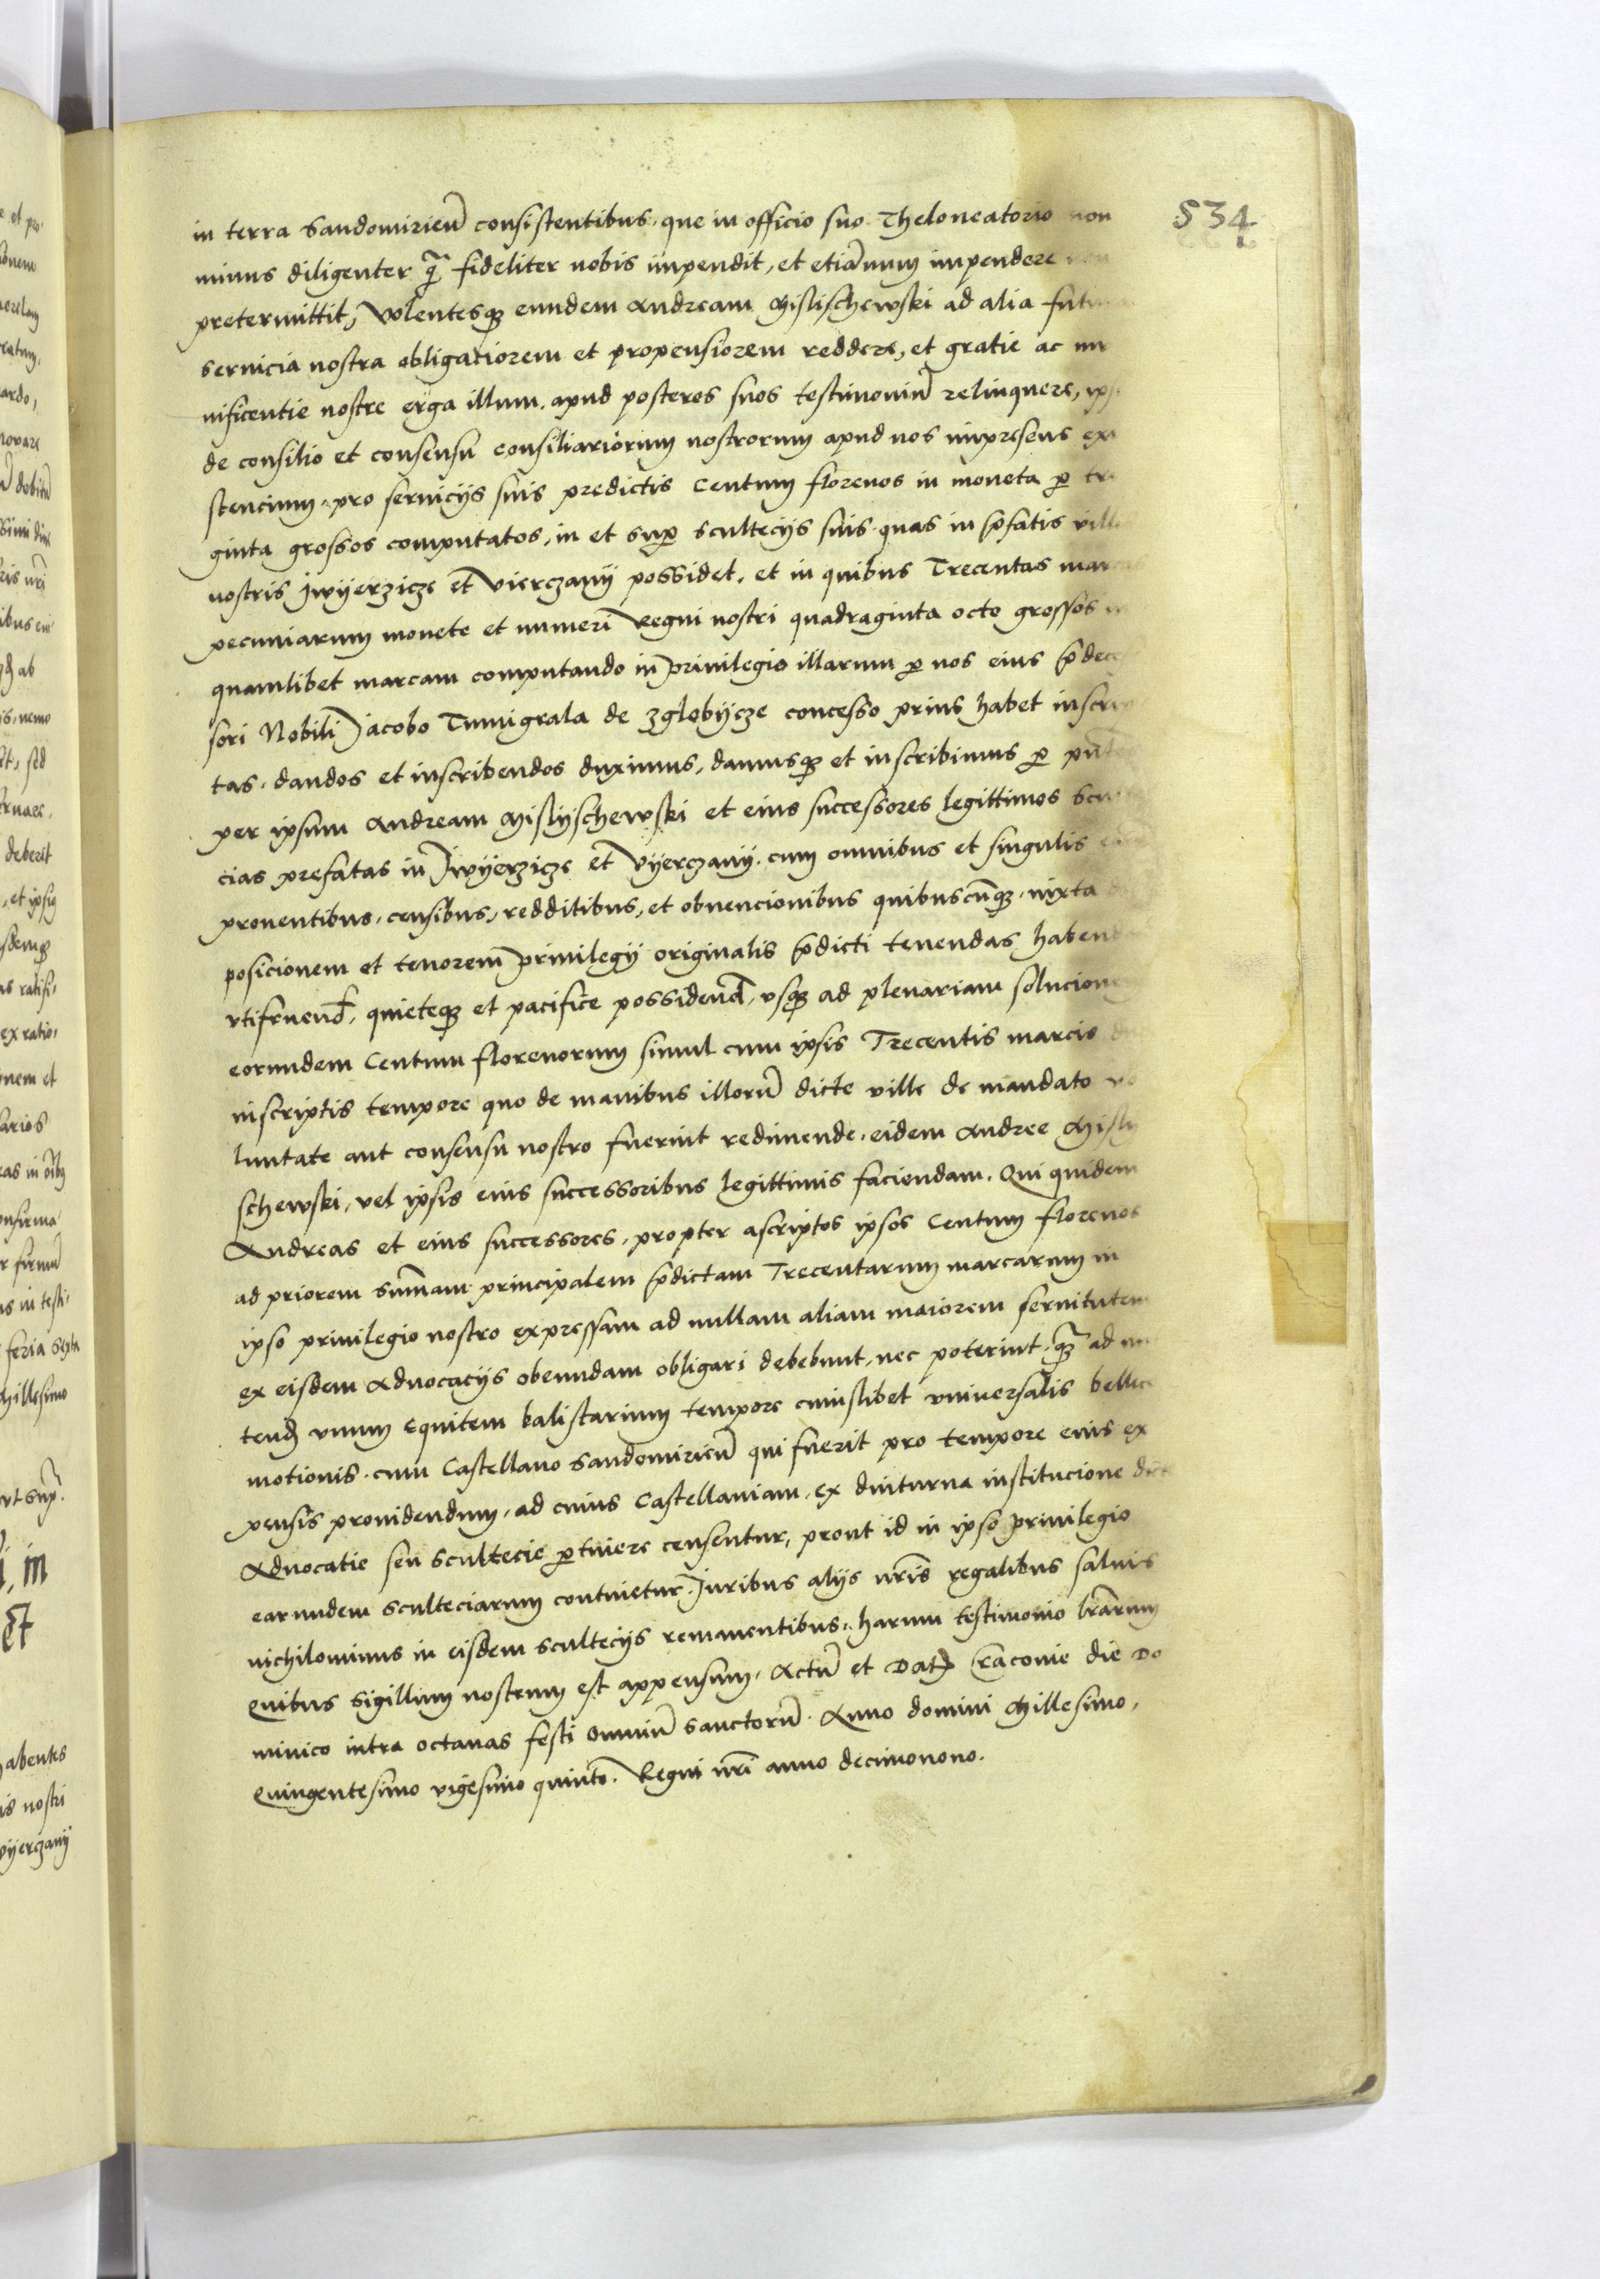 534
in terra Sandomirieñ consistentibus, que in officio suo Theloneatorio non
minus diligenter q̃ fideliter nobis impendit, et etiãnum impendere non
pretermittit, Volentesqȝ eundem Andream Mislischewski ad alia futu
servicia nostra obligatiorem et propensiorem reddere, et gratie ac mu
nificentie nostre erga illum, apud posteros suos testimoniũ relinquere, ip
de consilio et consensu consiliariorum nostrorum apud nos impresens exi
stencium, pro servicijs suis predictis Centum florenos in moneta p tri
ginta grossos computatos, in et sup scultecijs suis quas in p̃fatis villis
nostris Jwyerzicze et Vierczany possidet, et in quibus Trecentas marcas
pecuniarum monete et numeri Regni nostri quadraginta octo grossos in
quamlibet marcam computando in privilegio illarum p nos eius p̃deces
sori Nobili Jacobo Tumigrala de Zglobycze concesso prius habet inscrip
tas, dandos et inscribendos duximus, damusqȝ et inscribimus p pñtes
per ipsum Andream Mislyschewski et eius successores legittimos Scul
cias prefatas in Jwyerzicze et Vyerczany, cum omnibus et singulis
proventibus, censibus, redditibus, et obvencionibus quibuscũqȝ, iuxta
posicionem et tenorem privilegij originalis p̃dicti tenendas habend
utifruend, quieteqȝ et pacifice possidend, usqȝ ad plenariam solucionem
eorundem Centum florenorum simul cum ipsis Trecentis marcis
inscriptis tempore quo de manibus illorũ dicte ville de mandato vo
luntate aut consensu nostro fuerint redimende, eidem Andree Misly
schewski, vel ipsis eius successoribus legittimis faciendam. Qui quidem
Andreas et eius successores, propter ascriptos ipsos Centum florenos
ad priorem sum̃am principalem p̃dictam Trecentarum marcarum in
ipso privilegio nostro expressam ad nullam aliam maiorem servitutem
ex eisdem Advocacijs obeundam obligari debebunt, nec poterint, qȝ̃ ad mit
tend unum Equitem balistarium tempore cuiuslibet universalis bellice
motionis, cum Castellano Sandomirieñ qui fuerit pro tempore eius ex
pensis providendum, ad cuius Castellaniam, ex diuturna institucione dicte
Advocatie seu Scultecie ptinere censentur, prout id in ipso privilegio
earundem sculteciarum continetur. Juribus alijs nr̃is regalibus salvis
nichilominus in eisdem scultecijs remanentibus, harum testimonio lr̃arum
Quibus Sigillum nostrum est appensum. Actũ et Dat Craconie die Do
minico intra octavas festi omniũ Sanctorũ. Anno domini Millesimo,
Quingentesimo vigesimo quinto. Regni nr̃i anno decimonono.